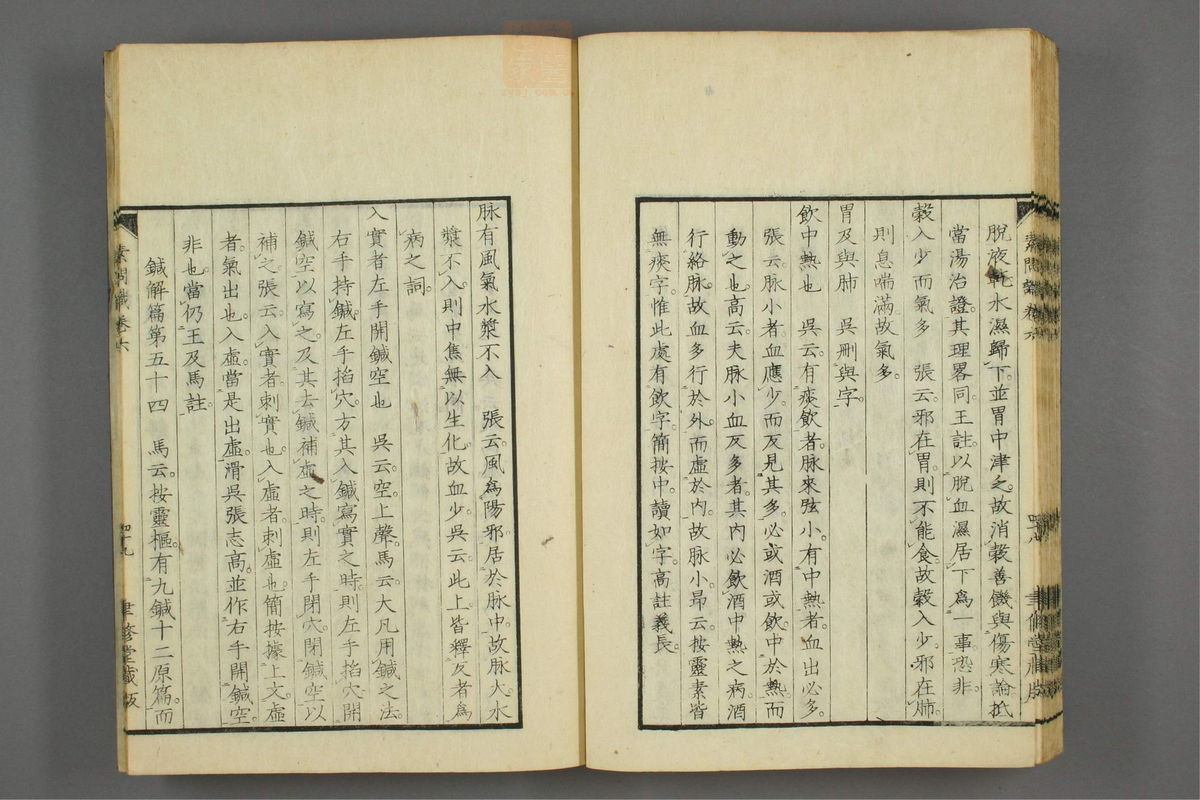 脫液乾水濕歸下並胃中津之故消穀善饑與傷寒論抵
當湯治證其理畧同王註以脫血濕居下爲一事恐非
穀入少而氣多　張云邪在胃則不能食故穀入少邪在肺
則息喘滿故氣多
胃及與肺　吳刪與字
飲中熱也　吳云有痰飲者脈來弦小有中熱者血出必多
張云脈小者血應少而反見其多必或酒或飲中於熱而
動之也高云夫脈小血反多者其内必飲酒中熱之病酒
行絡脈故血多行於外而虛於内故脈小昂云按靈素皆
無痰字惟此處有飲字簡按中讀如字高註義長
素問識卷六
脉有風氣水漿不入　張云風爲陽邪居於脉中故脈大水
漿不入則中焦無以生化故血少吳云此上皆釋反者爲
病之詞
入實者左手開鍼空也　吳云空上聲馬云大凡用鍼之法
右手持鍼左手掐穴方其入鍼寫實之時則左手掐穴開
鍼空以寫之及其去鍼補虛之時則左手閉穴閉鍼空以
補之張云入實者刺實也入虛者刺虛也簡按據上文虛
者氣出也入虛當是出虛滑吳張志高並作右手開鍼空
非也當仍王及馬註
鍼解篇第五十四　馬云按靈樞有九鍼十二原篇而
素問識卷六
四十九
聿修堂藏版